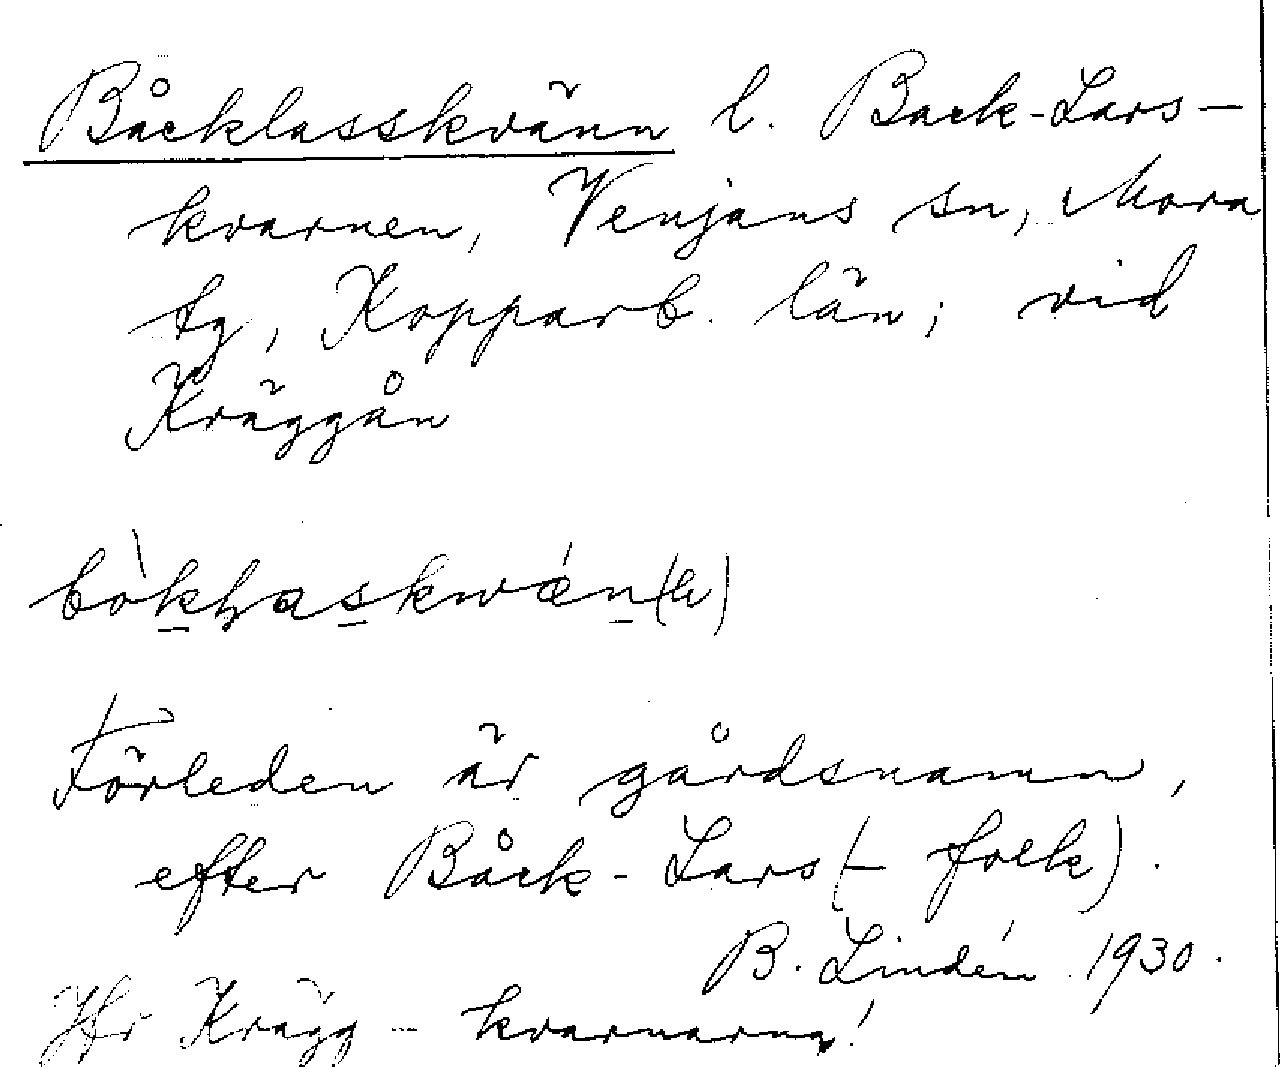 Båcklasskvänn l. Back-Lars-
kvarnen, Venjans sn, Mora
tg, Kopparb. län; vid
Kräggån

Förleden är gårdsnamn,
efter Båck-Lars(-folk).
B. Lindén 1930.
Jfr Krägg-kvarnarna!